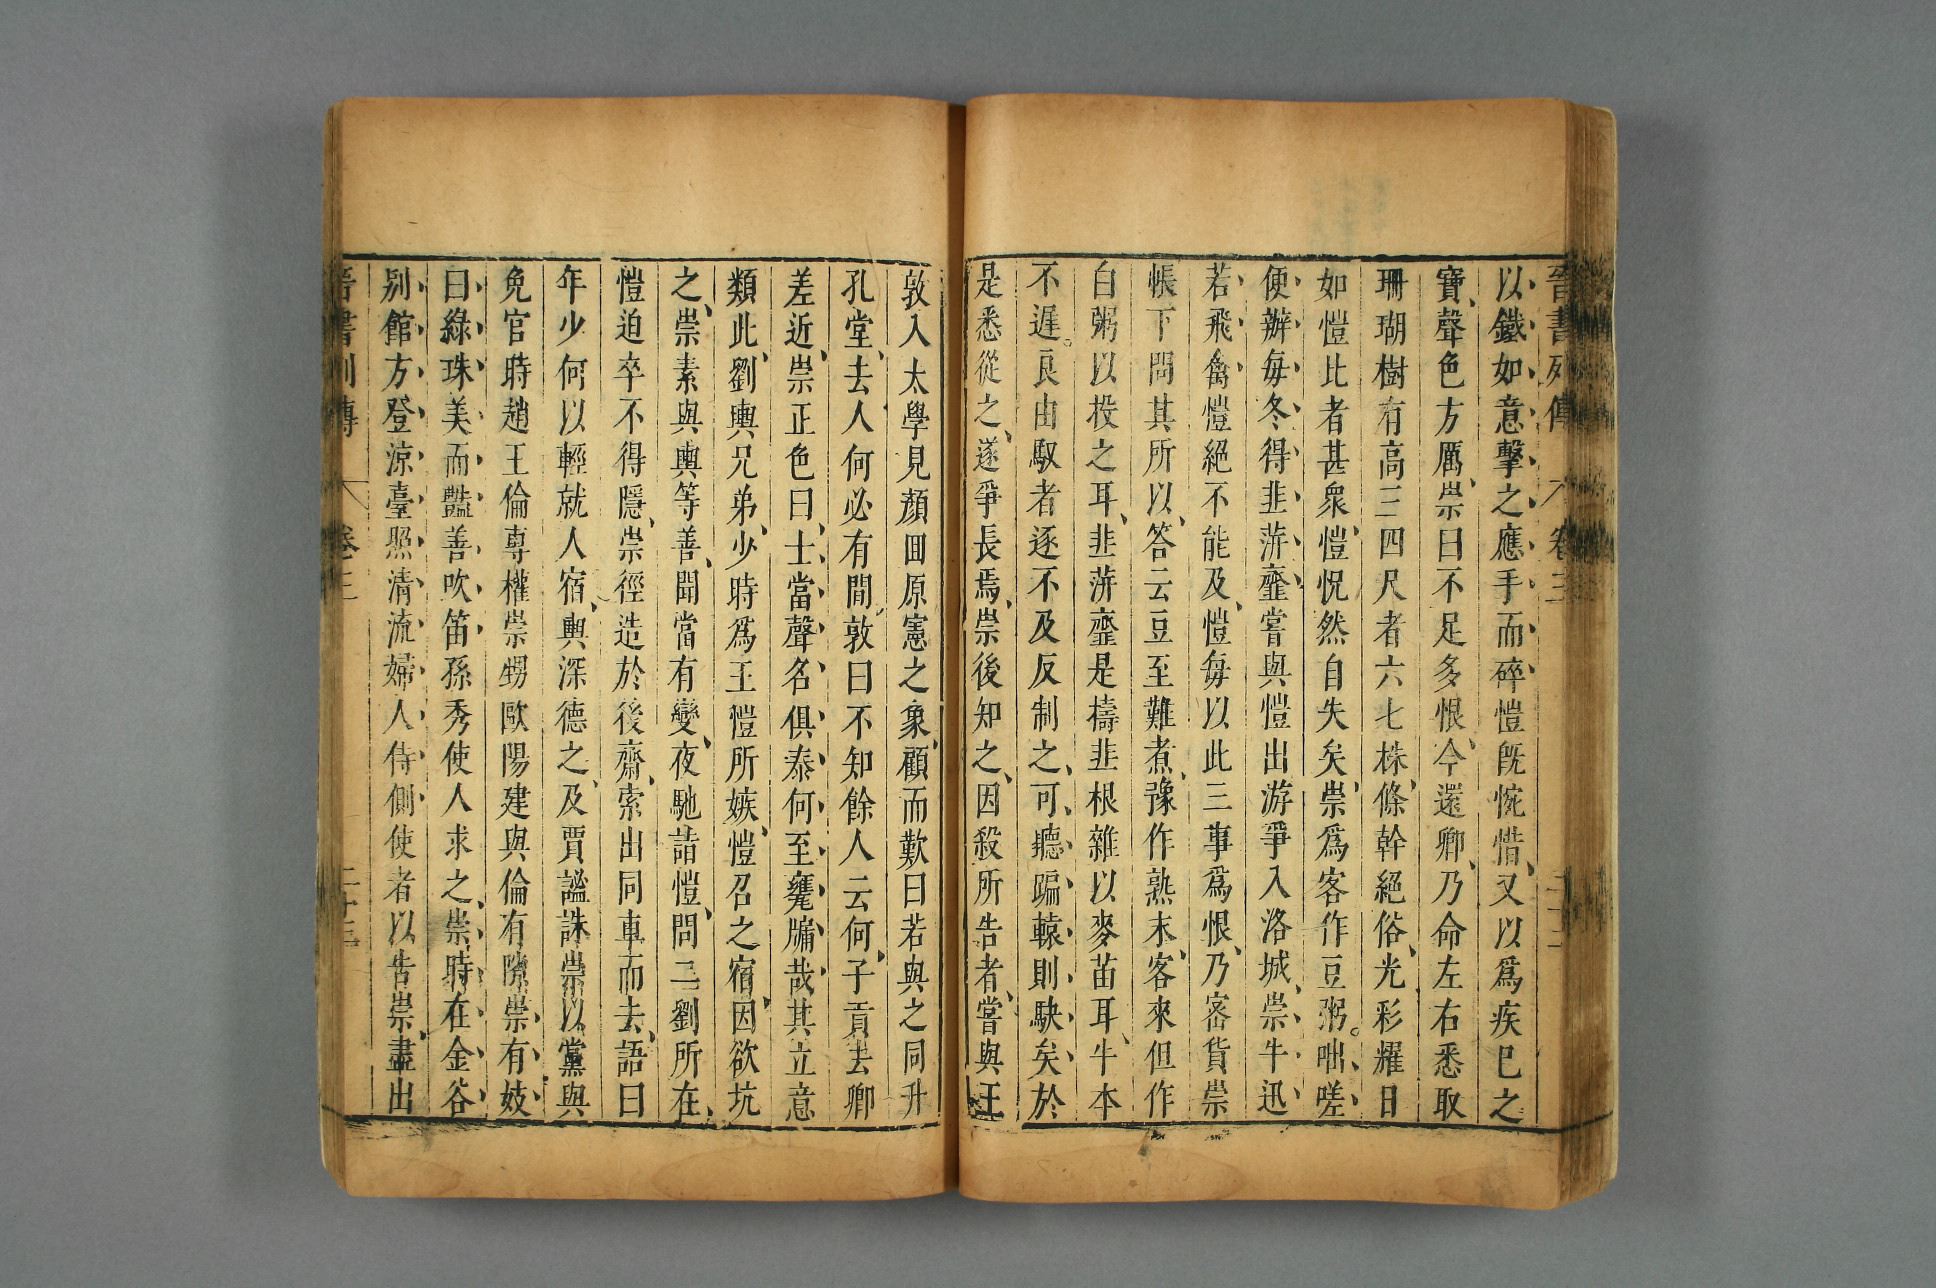 晉書列傳 卷三
以鐵如意擊之應手而碎愷旣惋惜又以爲疾已之
寶聲色方厲崇曰不足多恨今還卿乃命左右悉取
珊瑚樹有高三四尺者六七株條幹絕俗光彩耀日
如愷比者甚衆愷怳然自失矣崇爲客作豆粥咄嗟
便辦每冬得韭蓱虀嘗與愷出游爭入洛城崇牛迅
若飛禽愷絕不能及愷每以此三事爲恨乃密貨崇
帳下問其所以答云豆至難煮豫作熟末客來但作
白粥以投之耳韭蓱虀是擣韭根雜以麥苗耳牛本
不遲良由馭者逐不及反制之可聽蹁轅則駃矣於
是悉從之遂爭長焉崇後知之因殺所告者嘗與王
敦入太學見顏回原憲之象顧而歎曰若與之同升
孔堂去人何必有間敦曰不知餘人云何子貢去卿
差近崇正色曰士當聲名俱泰何至甕牖哉其立意
類此劉輿兄弟少時爲王愷所嫉愷召之宿因欲坑
之崇素與輿等善聞當有變夜馳詣愷問二劉所在
愷迫卒不得隱崇徑造於後齋索出同車而去語曰
年少何以輕就人宿輿深德之及賈謐誅崇以黨與
免官時趙王倫專權崇甥歐陽建與倫有隙崇有妓
曰綠珠美而豔善吹笛孫秀使人求之崇時在金谷
別館方登涼臺照清流婦人侍側使者以告崇盡出
晉書列傳 卷三 二十三